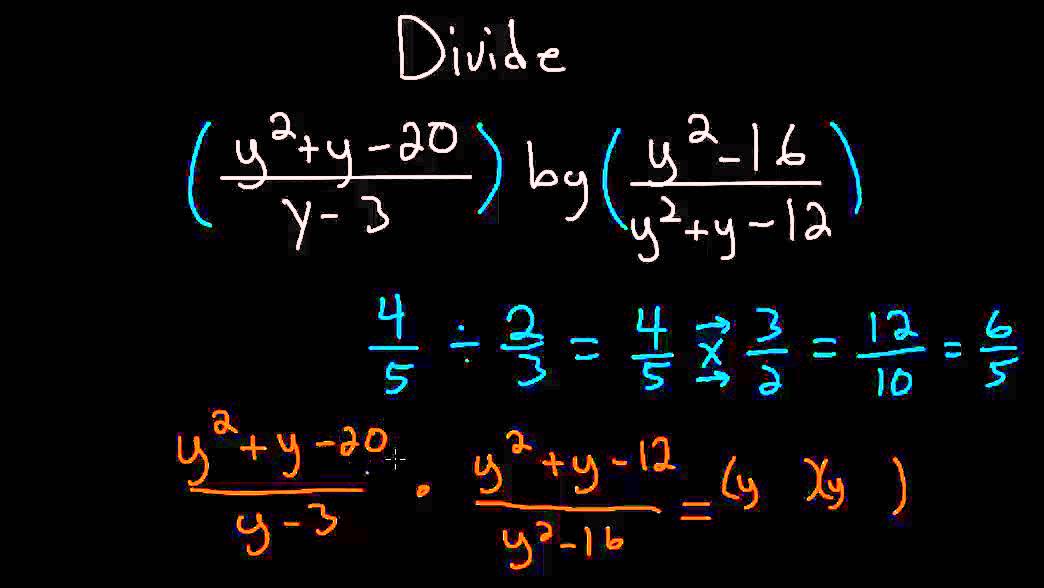 Divide
(y²+y-20 / y-3) by (y²-16 / y²+y-12)
4/5 ÷ 2/3 = 4/5 × 3/2 = 12/10 = 6/5
y²+y-20 / y-3 · y²+y-12 / y²-16 = (y )(y )